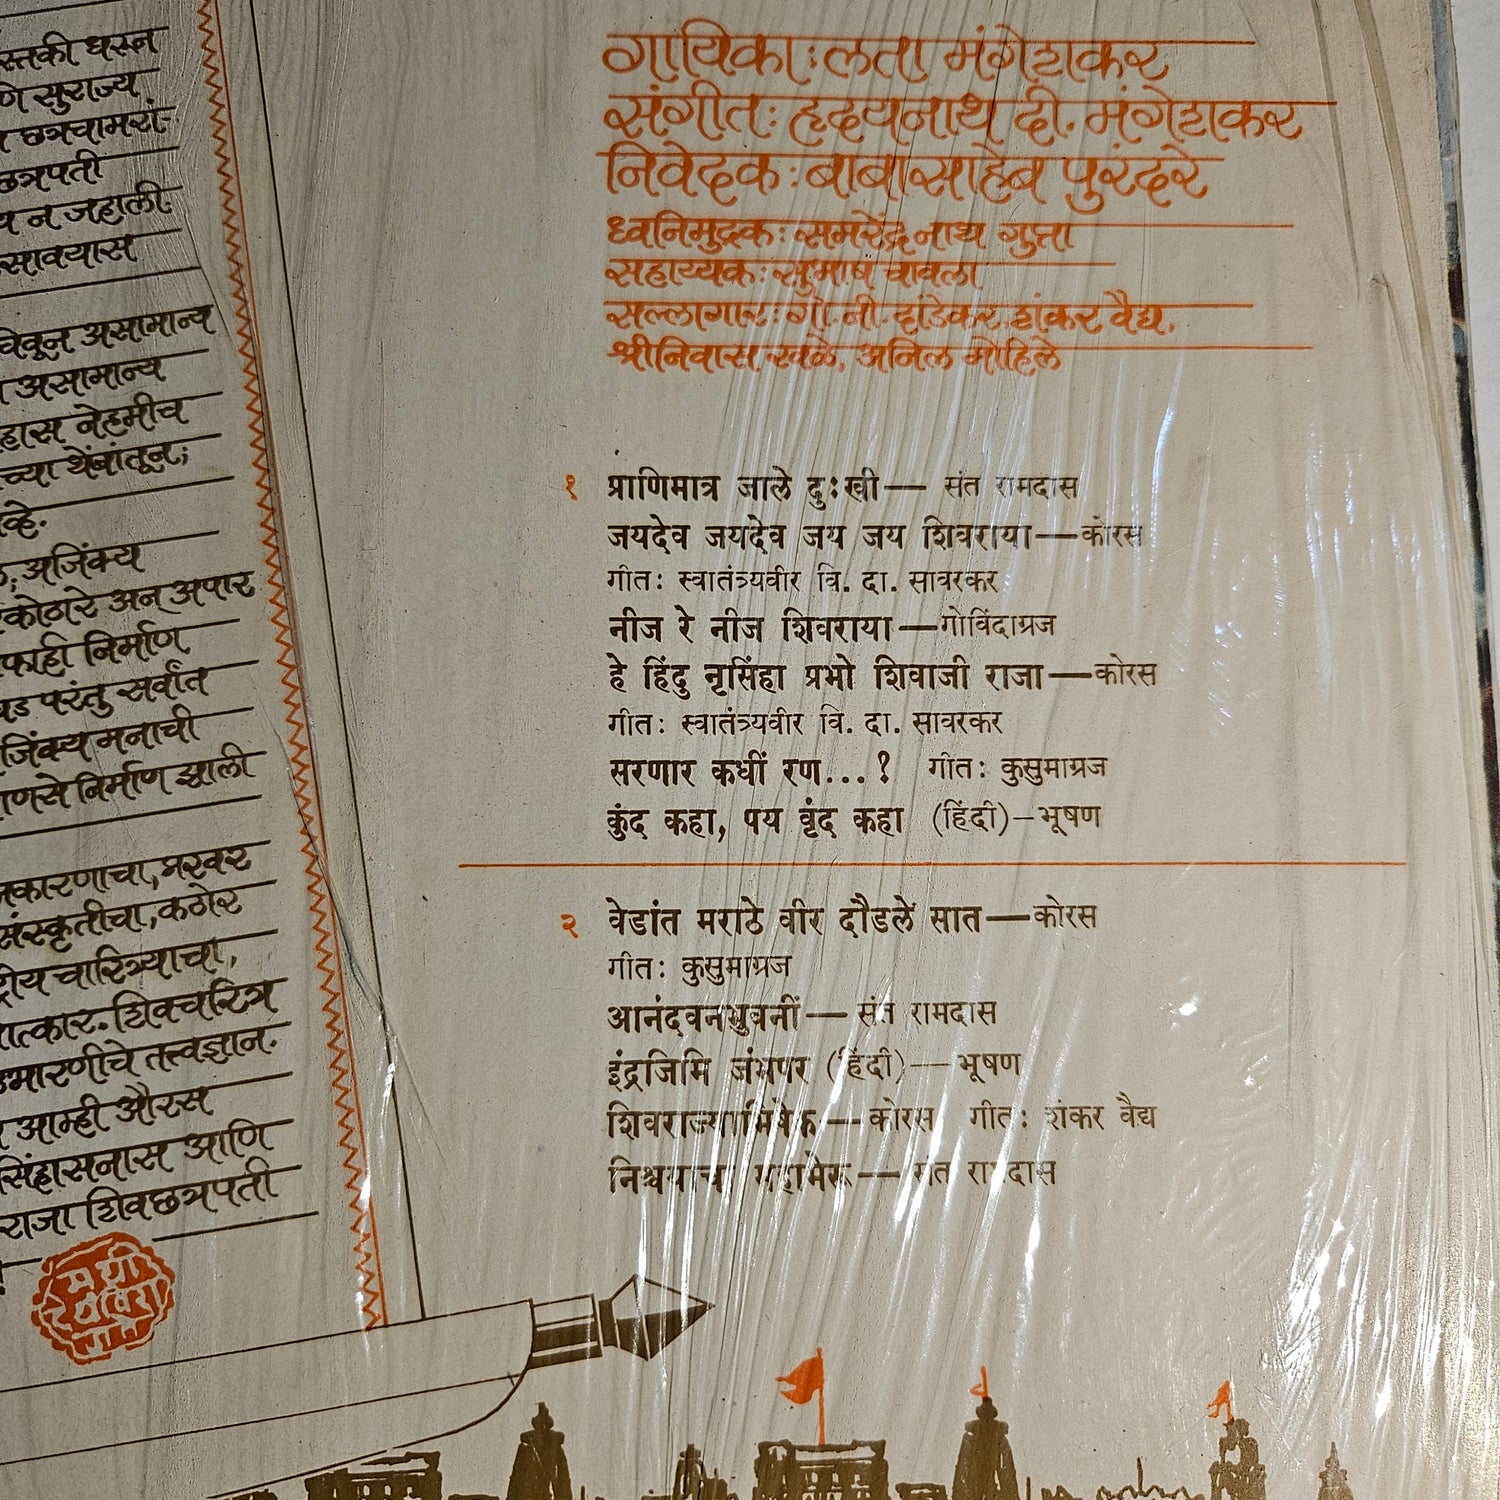 धरून
सुराज्य
छत्रचामरां-
छत्रपती
न जहाली.
असामान्य
असामान्य
नेहमीच
थेंबांतून;
अजिंक्य
अन अपार
काही निर्माण
परंतु सर्वांत
मनाची
निर्माण झाली
प्रखर
कठोर
चारित्र्याचा,
शिवचरित्र
उभारणीचे तत्त्वज्ञान.
आम्ही औरस
सिंहासनास आणि
राजा शिवछत्रपती
गायिका: लता मंगेशकर
संगीत: हृदयनाथ दी. मंगेशकर
निवेदक: बाबासाहेब पुरंदरे
ध्वनिमुद्रक: समरेंद्रनाथ गुप्ता
सहाय्यक: सुभाष चावला
सल्लागार: गो. नी. दांडेकर, शंकर वैद्य,
श्रीनिवास खळे, अनिल मोहिले
१ प्राणिमात्र जाले दुःखी— संत रामदास
जयदेव जयदेव जय जय शिवराया—कोरस
गीत: स्वातंत्र्यवीर वि. दा. सावरकर
नीज रे नीज शिवराया—गोविंदाग्रज
हे हिंदु नृसिंहा प्रभो शिवाजी राजा—कोरस
गीत: स्वातंत्र्यवीर वि. दा. सावरकर
सरणार कधीं रण...? गीत: कुसुमाग्रज
कुंद कहा, पय वृंद कहा (हिंदी)—भूषण
२ वेडांत मराठे वीर दौडले सात—कोरस
गीत: कुसुमाग्रज
आनंदवनभुवनीं— संत रामदास
इंद्रजिमि जंभपर (हिंदी)— भूषण
शिवराज्याभिषेक—कोरस गीत: शंकर वैद्य
निश्चयाचा महामेरू— संत रामदास